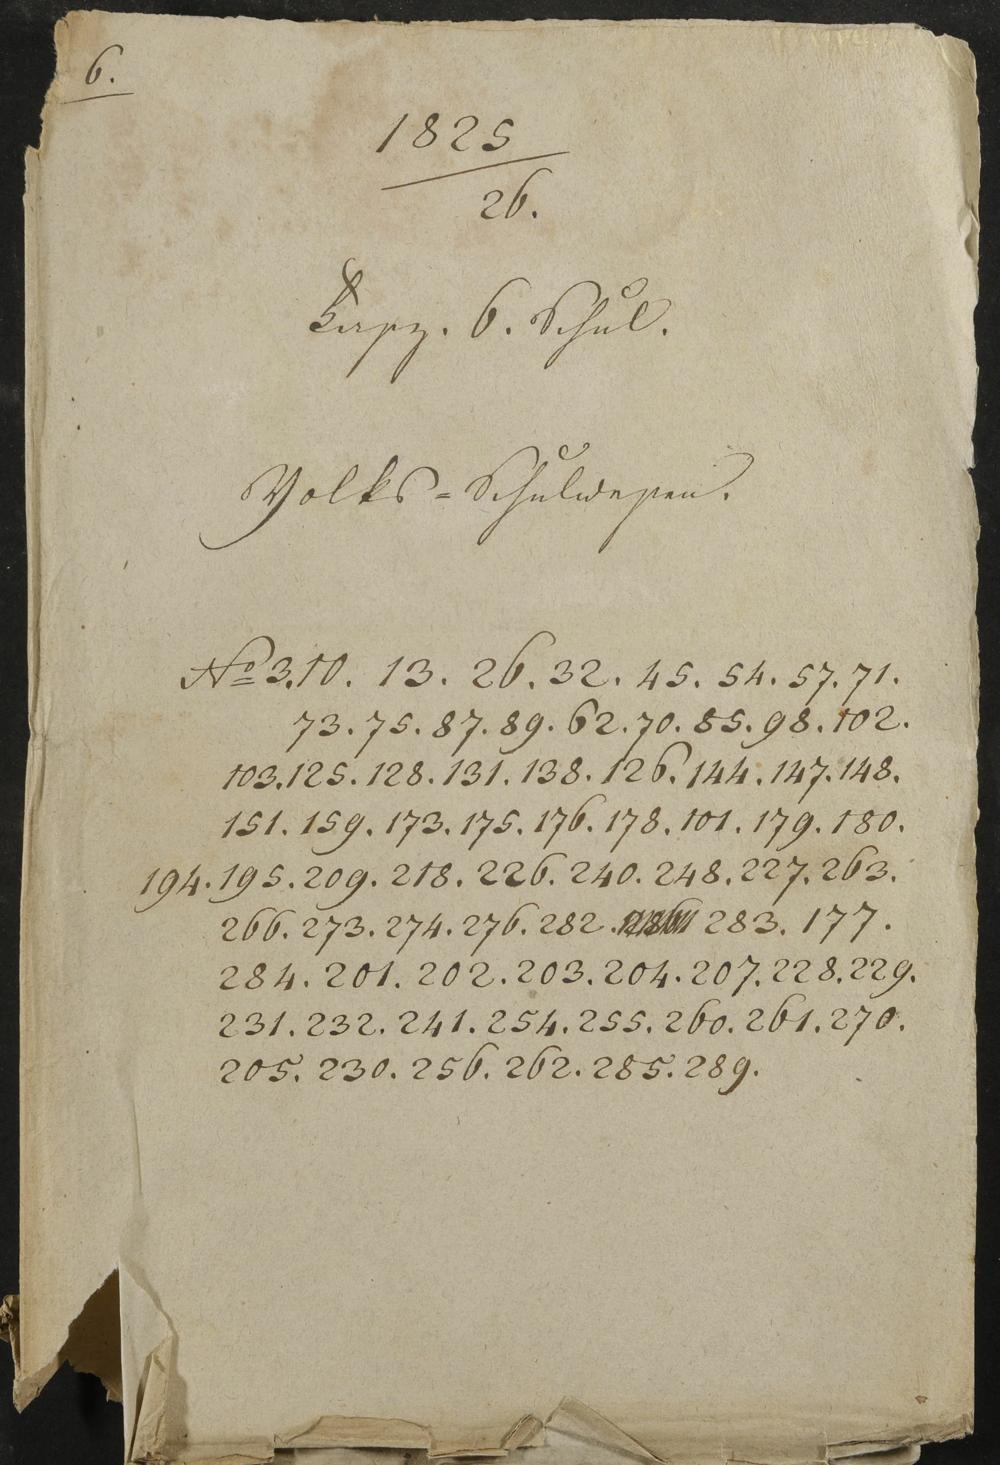 6.
1825
26.
Fasz. 6. Schul.
Volks=Schulwesen.
No 3. 10. 13. 26. 32. 45. 54. 57. 71.
73. 75. 87. 89. 62. 70. 85. 98. 102.
103. 125. 128. 131. 138. 126. 144. 147. 148.
151. 159. 173. 175. 176. 178. 101. 179. 180.
194. 195. 209. 218. 226. 240. 248. 227. 263.
266. 273. 274. 276. 282. 283. 177.
284. 201. 202. 203. 204. 207. 228. 229.
231. 232. 241. 254. 255. 260. 261. 270.
205. 230. 256. 262. 285. 289.